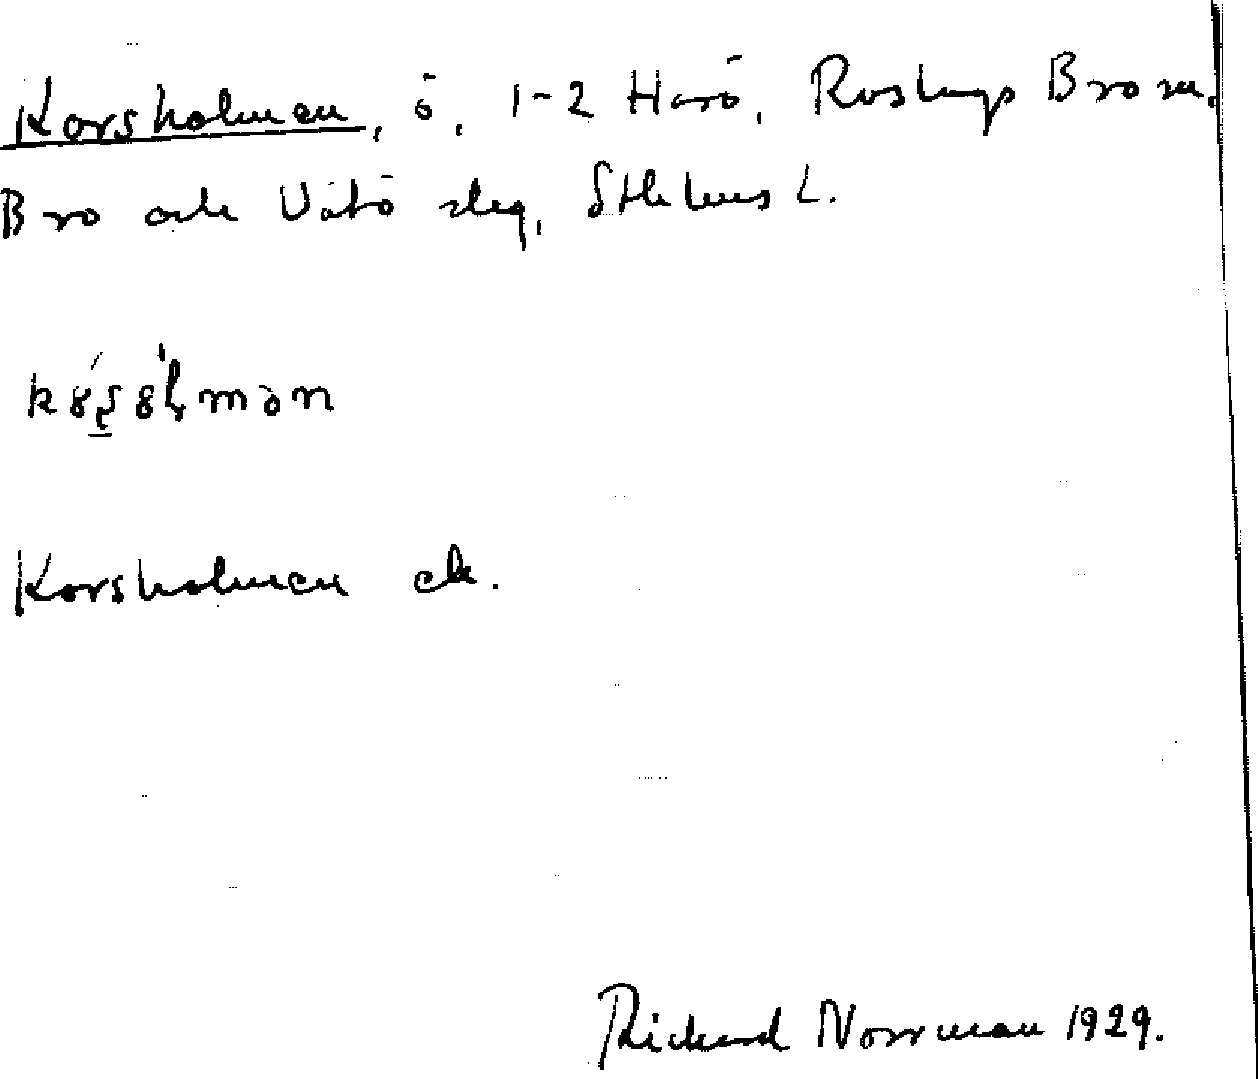 Korsholmen, ö, 1-2 Harö, Roslags Bro sn.
Bro och Vätö slg, Sthlms L.
Korsholmen ek.
Rickard Norrman 1929.